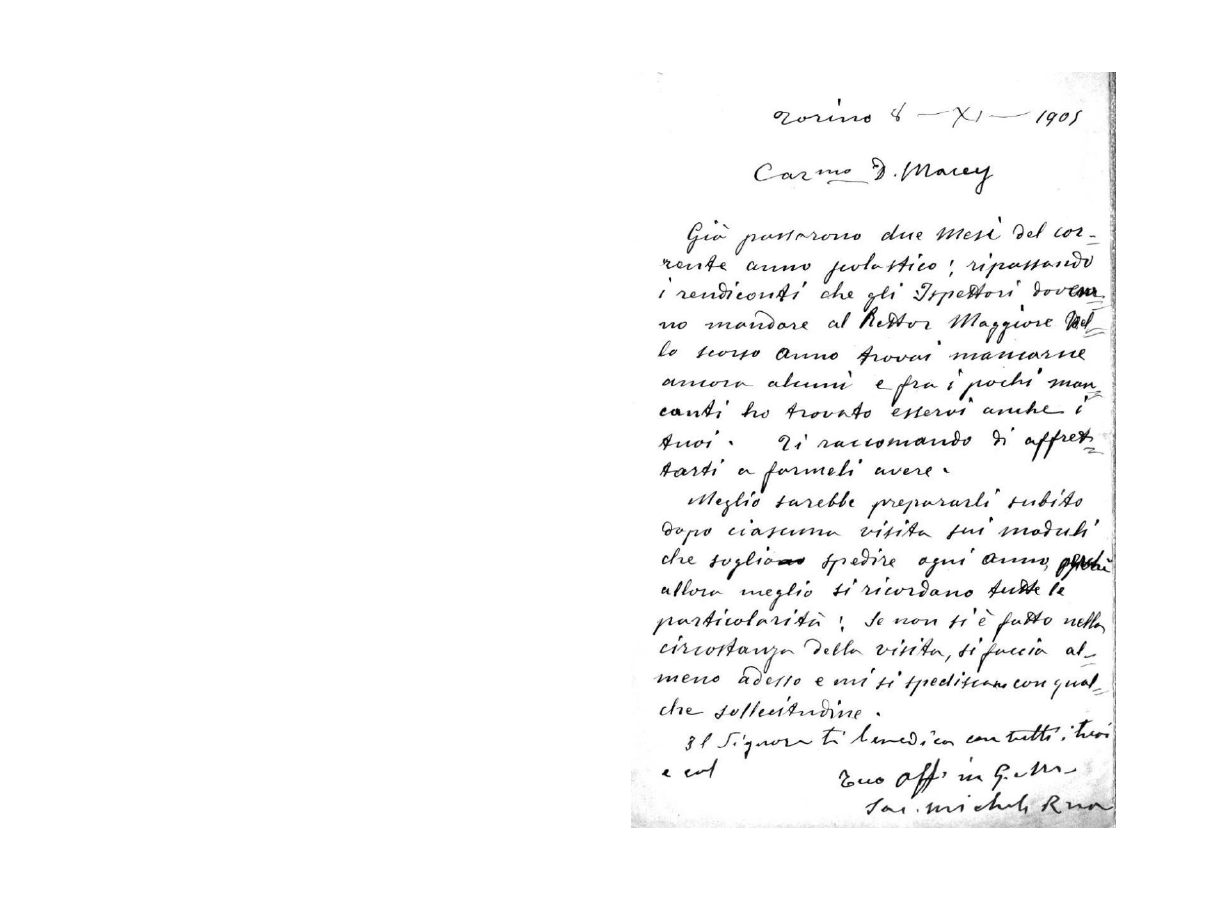 Torino 8 — XI — 1905
Car.mo D. Macey
Già passarono due mesi del cor-
rente anno scolastico; ripassando
i rendiconti che gli Ispettori devon
no mandare al Rettor Maggiore del
lo scorso anno trovai mancarne
ancora alcuni e fra i pochi man
canti ho trovato esservi anche i
tuoi. Ti raccomando di affret
tarti a farmeli avere.
Meglio sarebbe prepararli subito
dopo ciascuna visita sui moduli
che soglio spedire ogni anno, perchè
allora meglio si ricordano tutte le
particolarità; se non si è fatto nella
circostanza della visita, si faccia al-
meno adesso e mi si spediscano con qual-
che sollecitudine.
Il Signore ti benedica con tutti i tuoi
e col Tuo aff. in G. e M.
Sac. Michele Rua